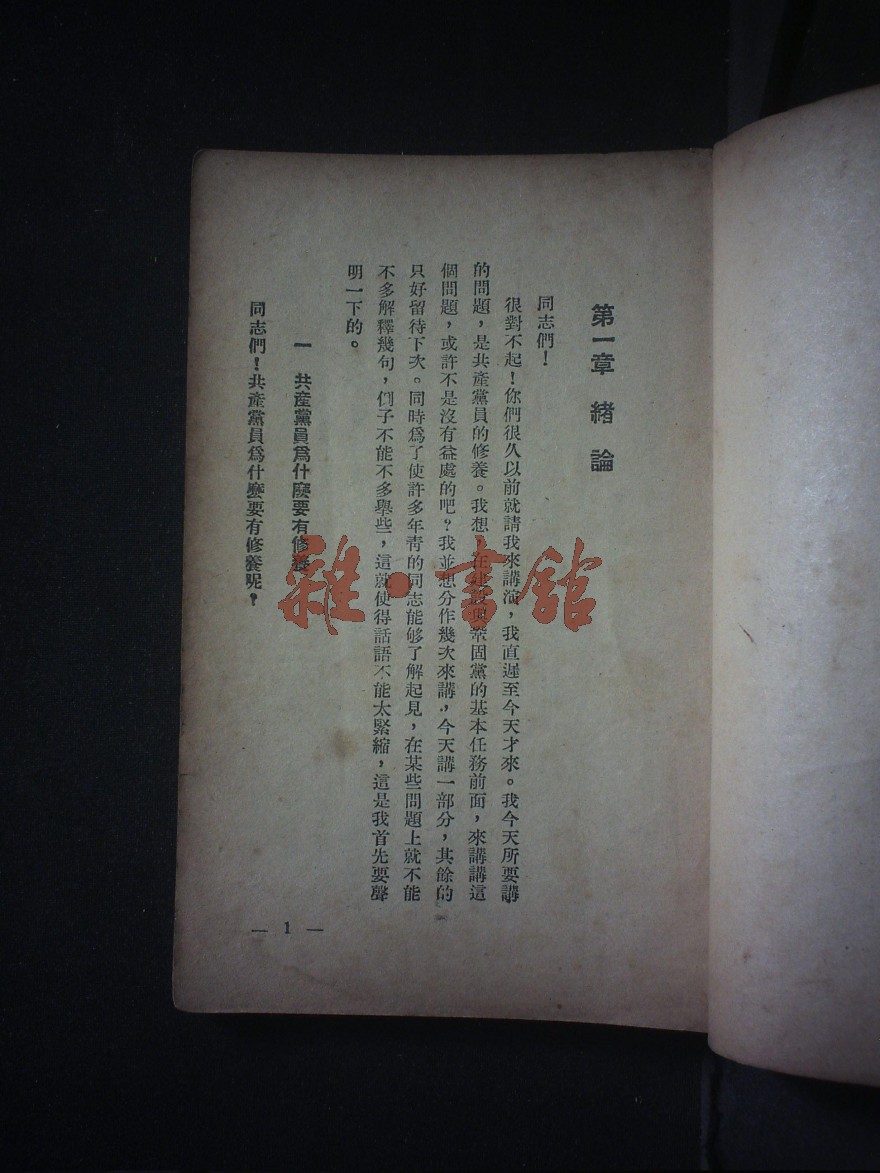 第一章 緒論
同志們！
很對不起！你們很久以前就請我來講演，我直遲至今天才來。我今天所要講
的問題，是共產黨員的修養。我想，在建設與鞏固黨的基本任務前面，來講講這
個問題，或許不是沒有益處的吧？我並想分作幾次來講，今天講一部分，其餘的
只好留待下次。同時爲了使許多年靑的同志能够了解起見，在某些問題上就不能
不多解釋幾句，例子不能不多舉些，這就使得話語不能太緊縮，這是我首先要聲
明一下的。
一 共產黨員爲什麽要有修養
同志們！共產黨員爲什麽要有修養呢？
— 1 —
雜·書館